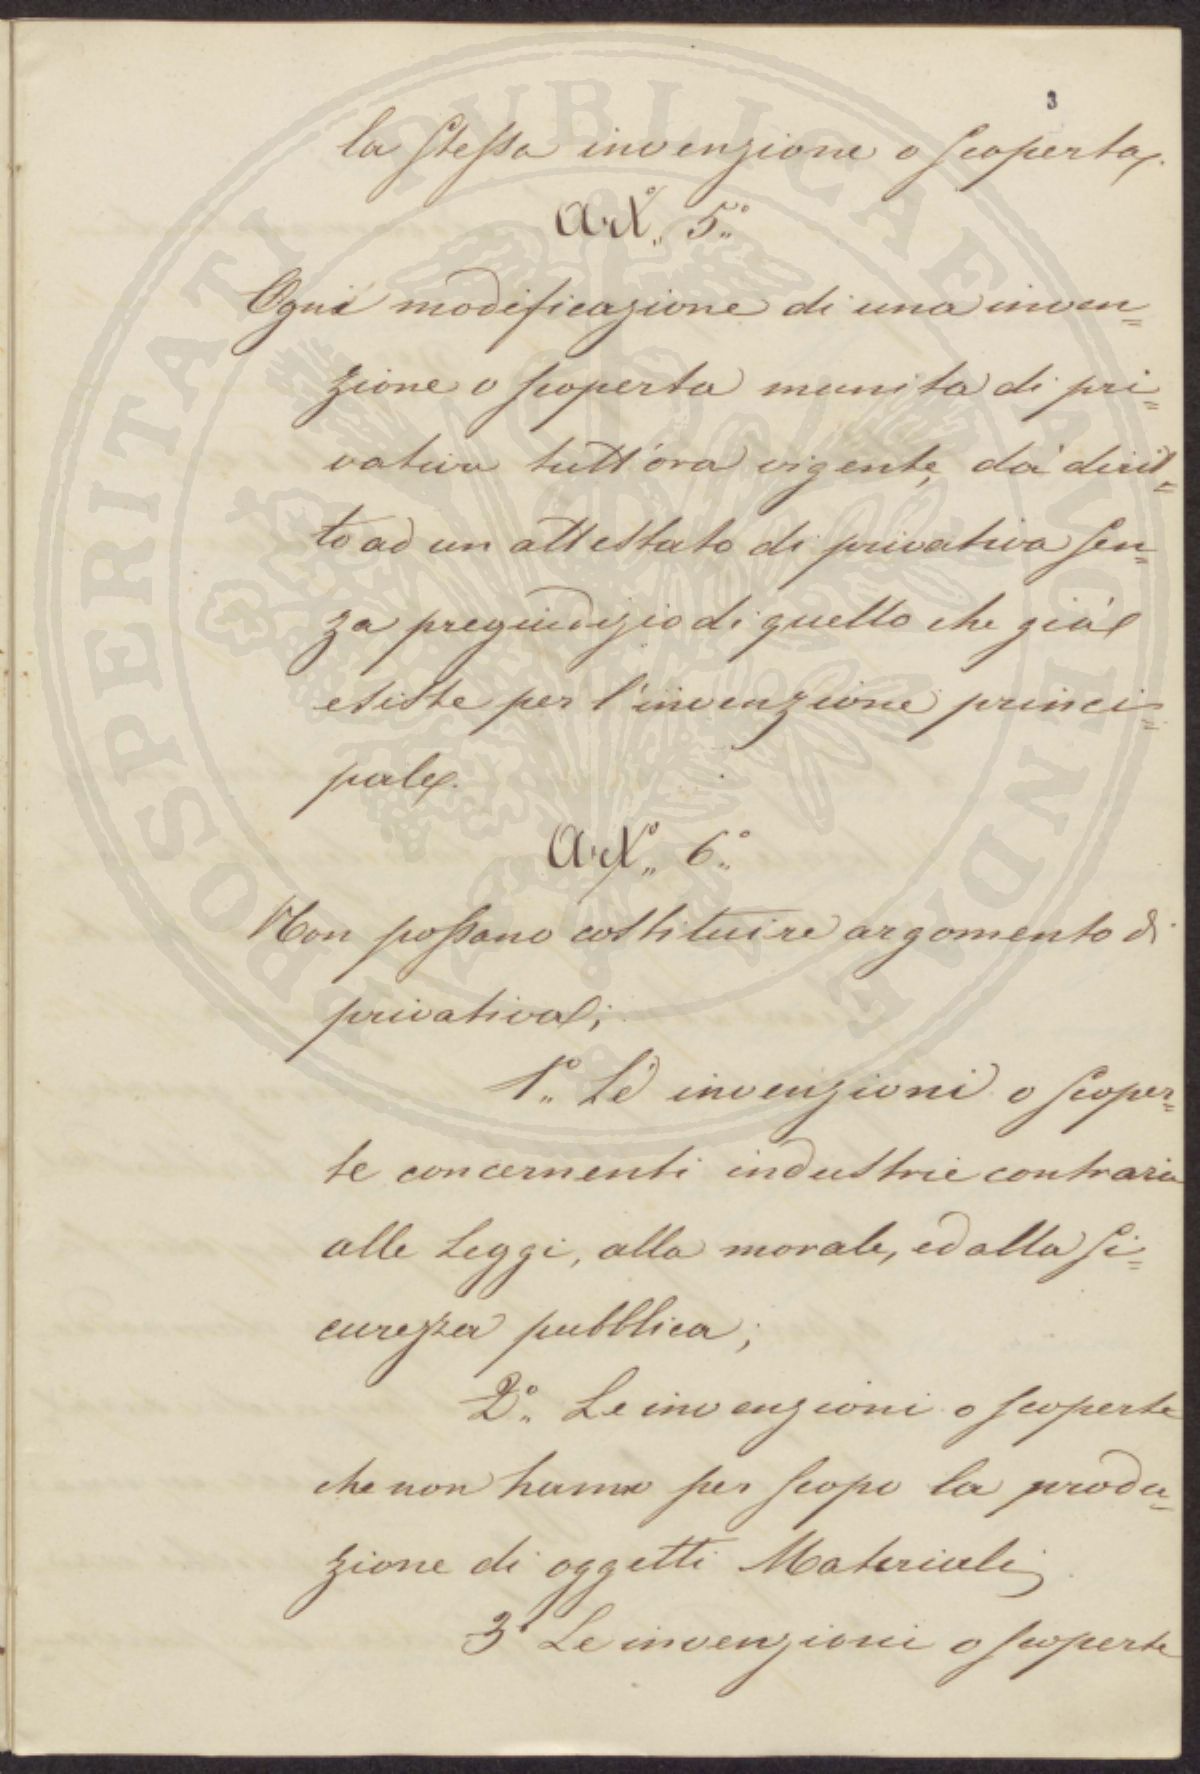 3
la stessa invenzione o scoperta.
Art.° 5.°
Ogni modificazione di una inven=
zione o scoperta munita di pri=
vativa tutt'ora vigente, dà dirit=
to ad un attestato di privativa sen=
za pregiudizio di quello che già
esiste per l'invenzione princi=
pale.
Art.° 6.°
Non possano costituire argomento di
privativa;
1.° Le invenzioni o scoper=
te concernenti industrie contrarie
alle Leggi, alla morale, ed alla si=
curezza pubblica;
2.° Le invenzioni o scoperte
che non hanno per scopo la produ=
zione di oggetti Materiali;
3° Le invenzioni o scoperte
PROSPERITATI PUBLICAE AUGENDAE